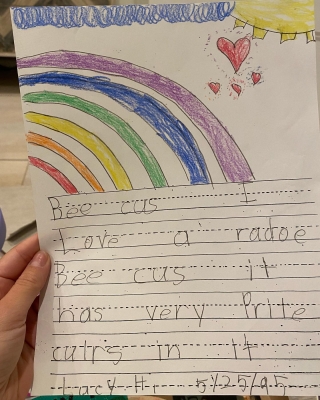 Bee cus I
Love a radoe
Bee cus it
has very Prite
culrs in it
Lacy H. 5/25/95